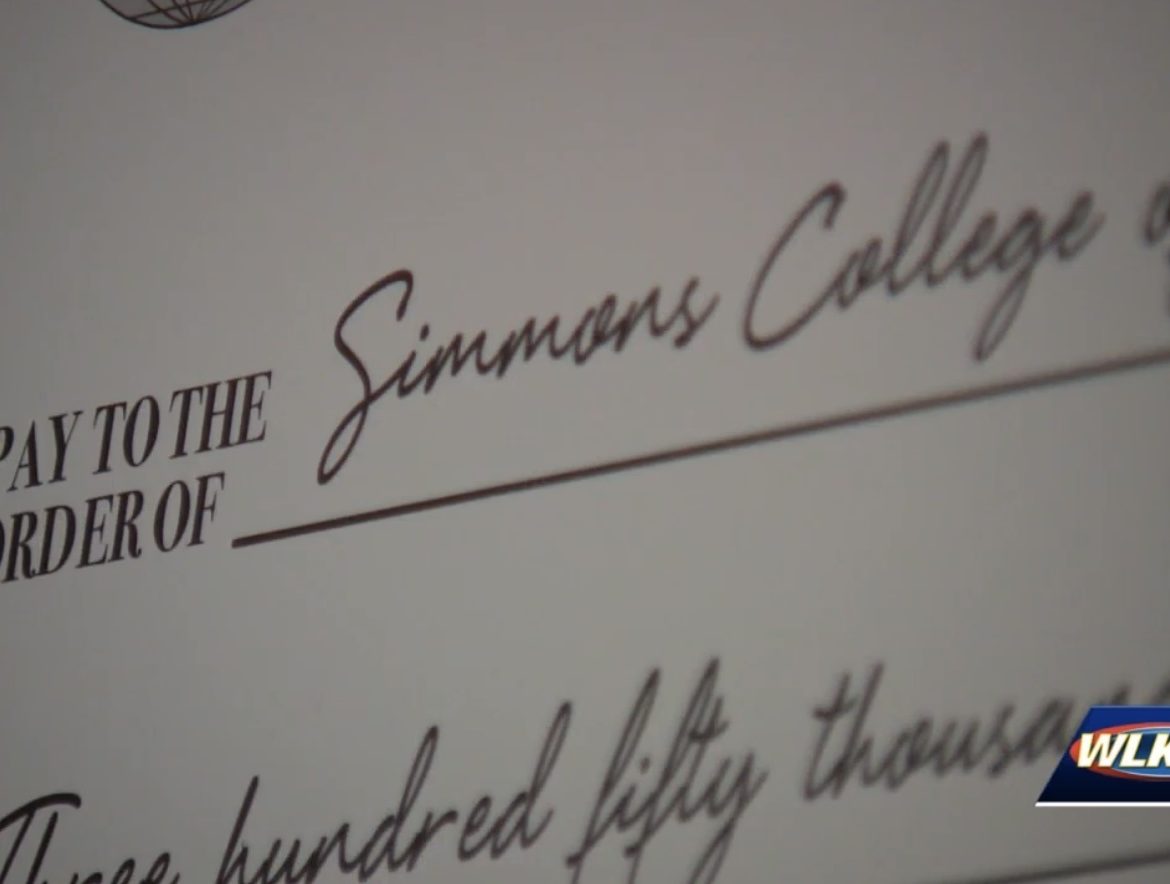 PAY TO THE
ORDER OF
Simmons College
Three hundred fifty
WLK